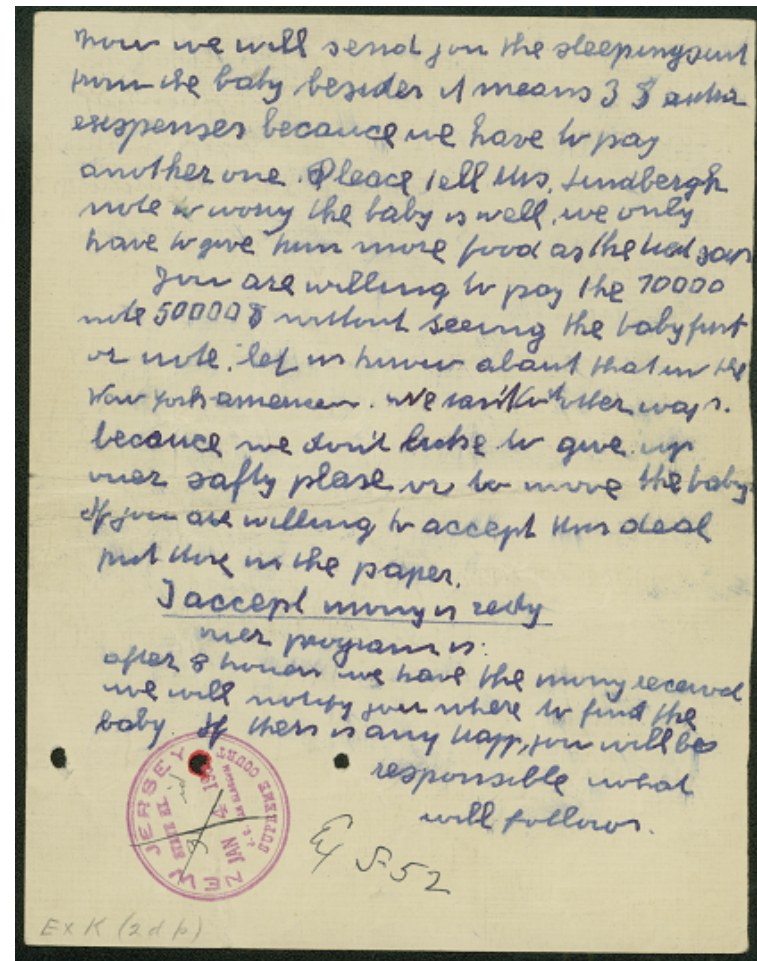 now we will send you the sleepingsuit
from the baby besides it means 3 $ extra
exspenses becauce we have to pay
another one. Pleace tell Mrs. Lindbergh
note to worry the baby is well. we only
have to give him more food as the diet says
You are willing to pay the 70000
note 50000 $ without seeing the baby first
or note. let us know about that in the
New York american. We can't other way.
becauce we don't like to give up
ouer safty plase or to move the baby.
If you are willing to accept this deal
put this in the paper.
I accept mony is redy
ouer program is:
after 8 houers we have the mony received
we will notify you where to find the
baby. If thers is any trapp, you will be
responsible what
will follows.
NEW JERSEY
SUPREME COURT
JAN 4 
Ex S-52
Ex K (2d p)